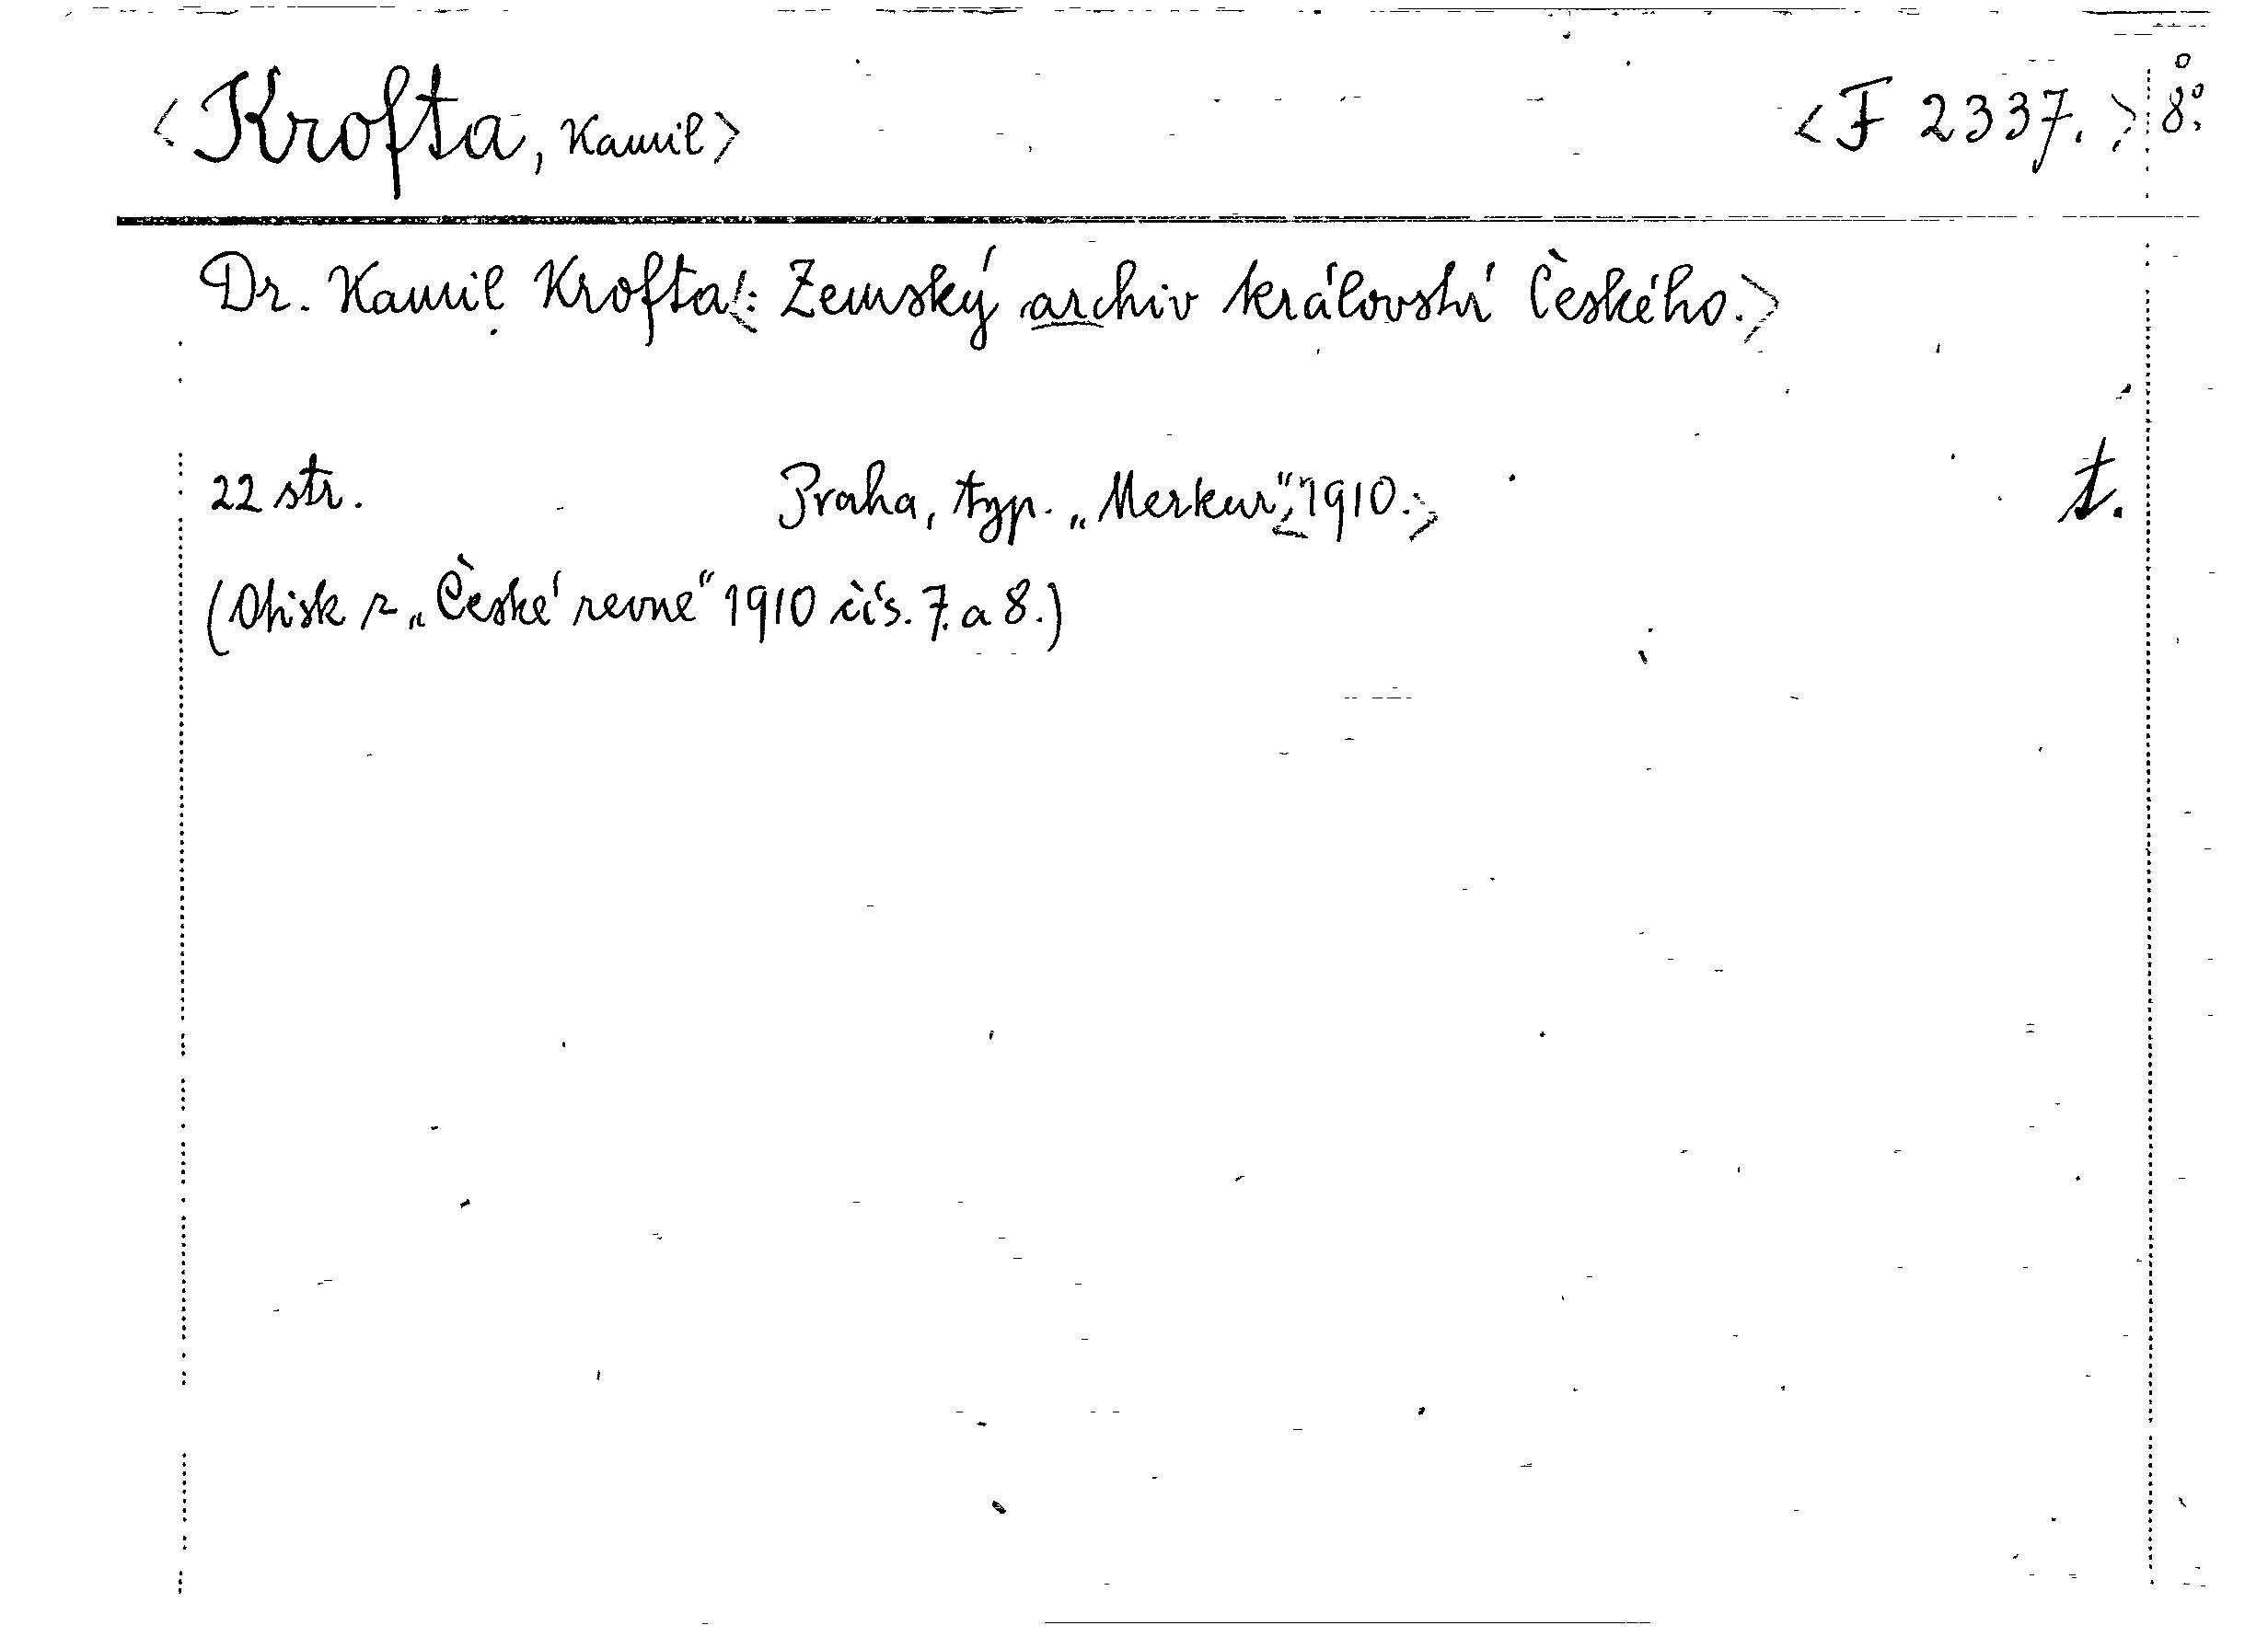 <Krofta, Kamil> <F 2337.> 8°.
Dr. Kamil Krofta<: Zemský archiv království Českého.>
22 str. Praha, typ. „Merkur“, <1910.> t.
(Otisk z „České revue“ 1910 čís. 7. a 8.)